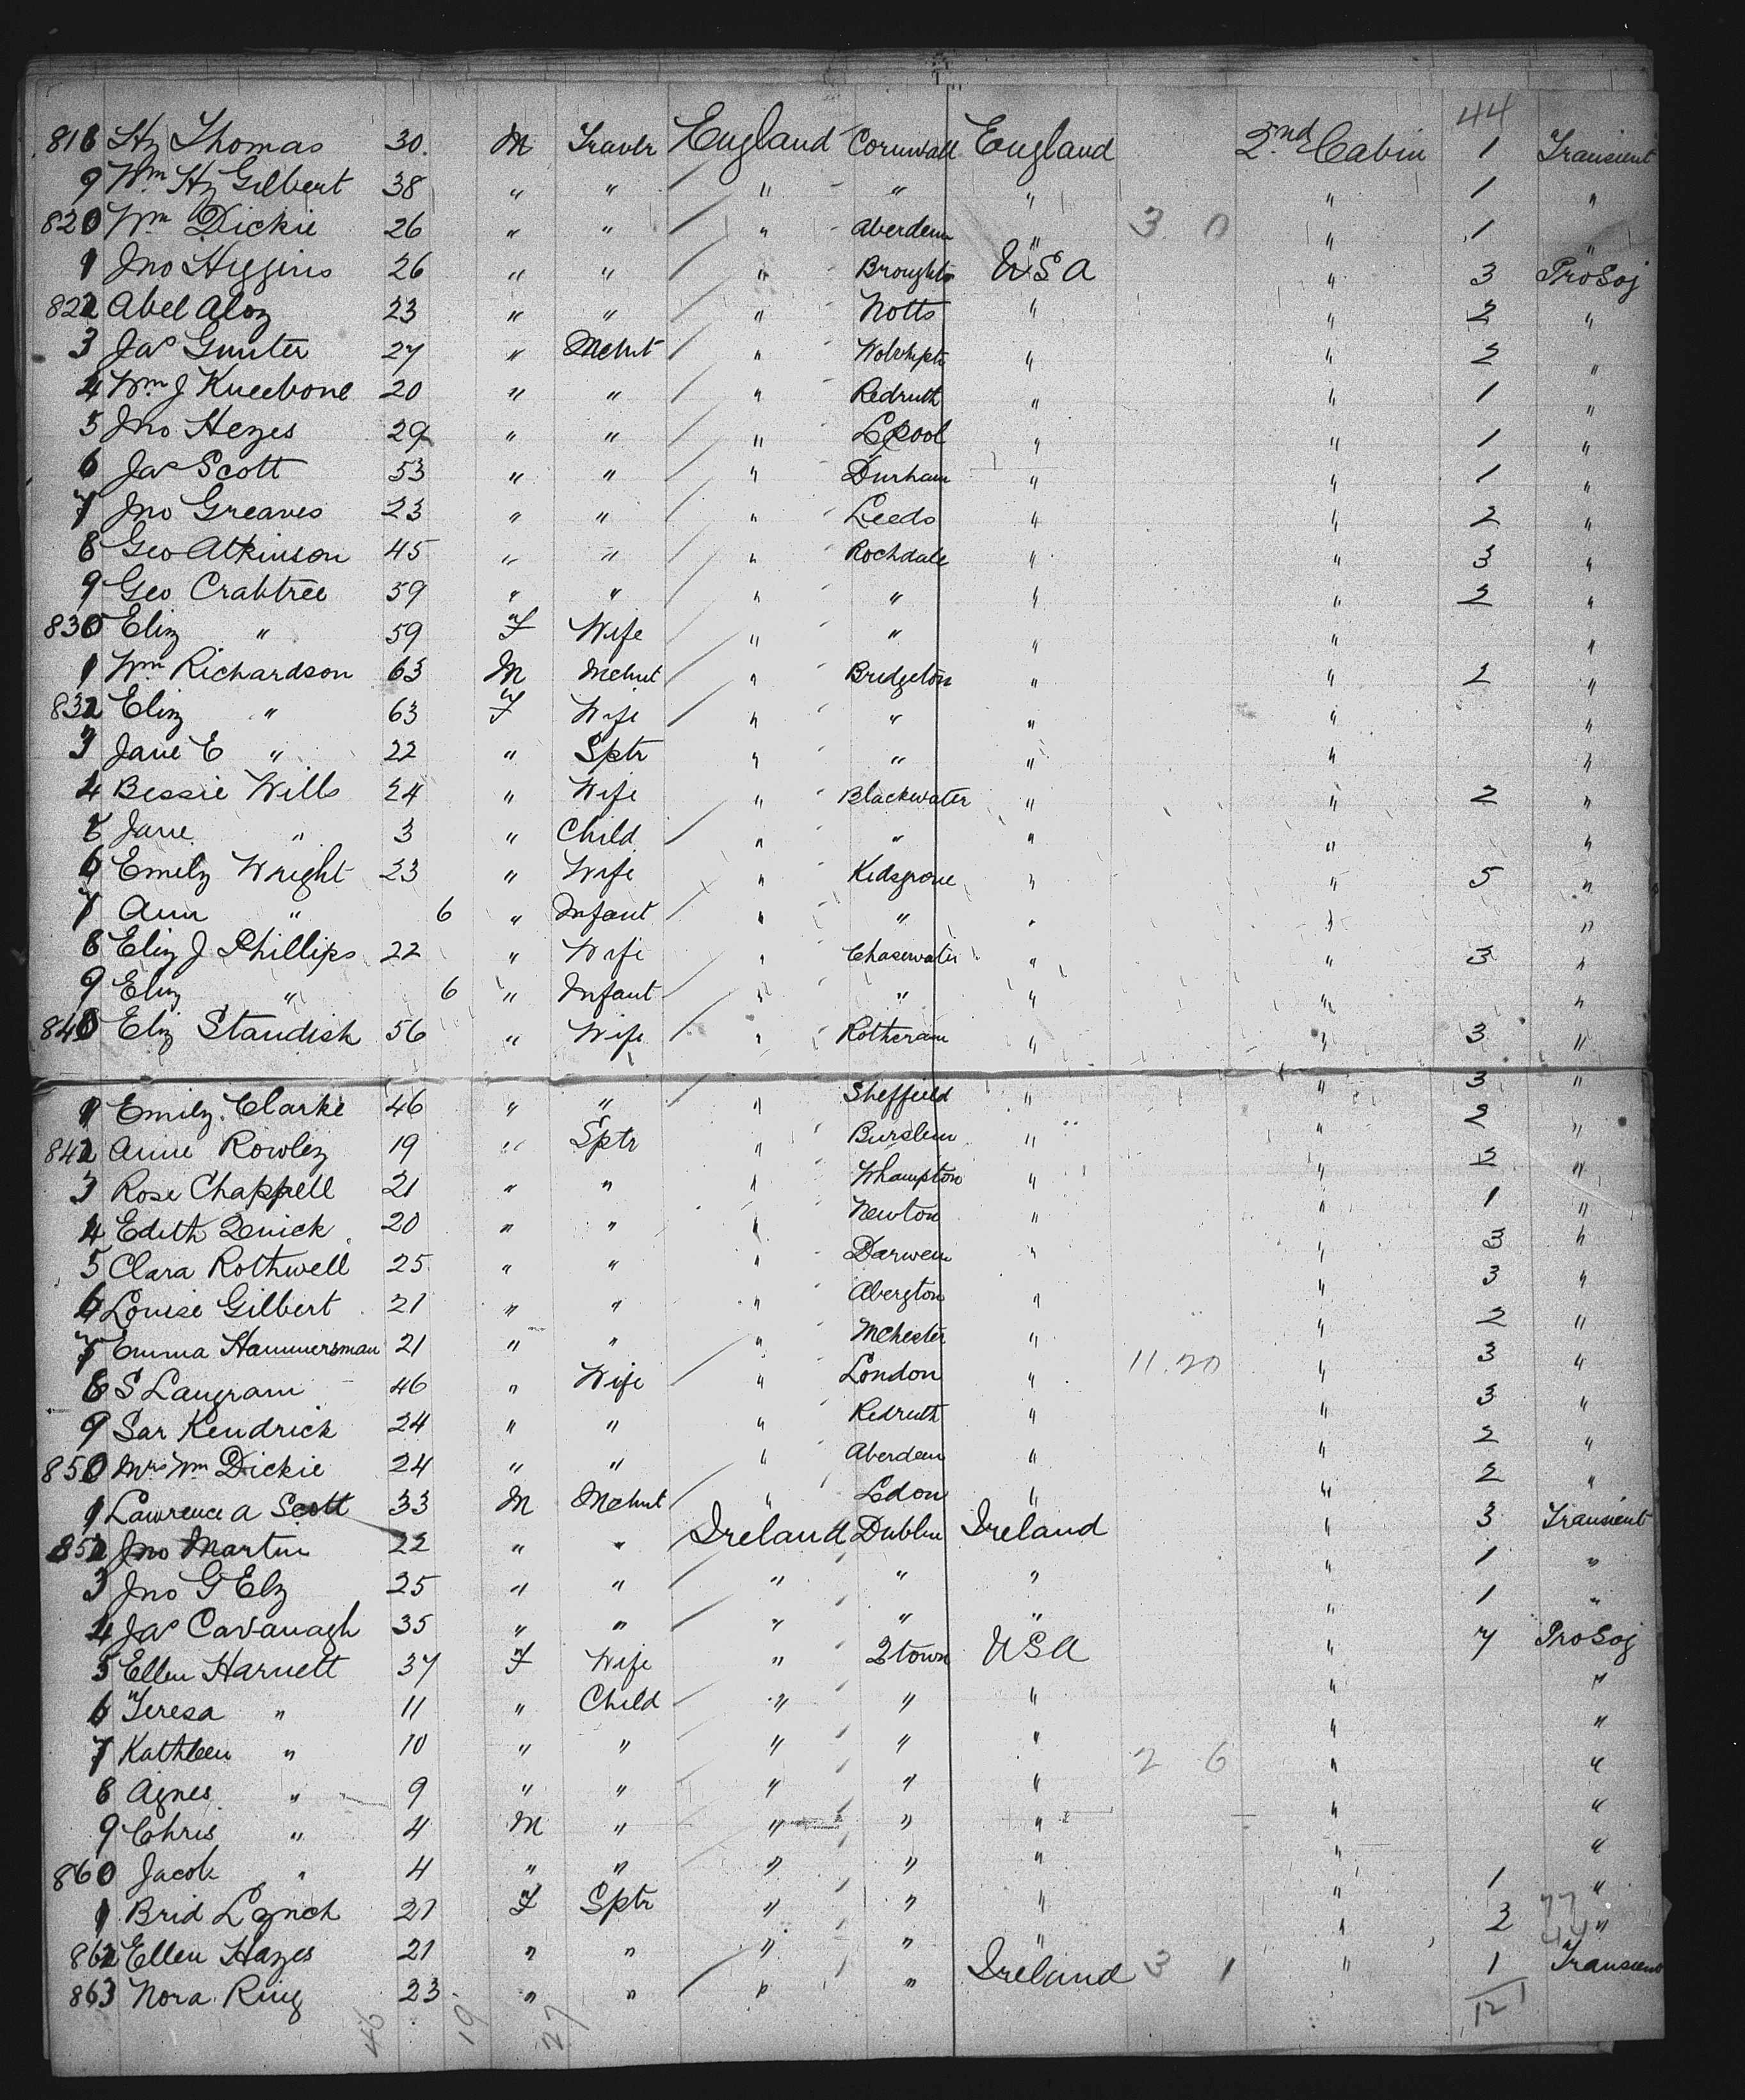 44
818 Hy Thomas 30. M Travlr England Cornwall England 2nd Cabin 1 Transient
9 Wm Hy Gilbert 38 " " / " " " " 1 "
820 Wm Dickie 26 " " / " Aberdeen " 3 0 " 1 "
1 Jno Higgins 26 " " / " Broughton USA " 3 ProSoj
822 Abel Aloy 23 " " / " Notts " " 2 "
3 Jas Gunter 27 " Mchnt / " " " 2 "
4 Wm J Kneebone 20 " " / " Redruth " " 1 "
5 Jno Heyes 29 " " / " Lpool " " 1 "
6 Jas Scott 53 " " / " Durham " " 1 "
7 Jno Greaves 23 " " / " Leeds " " 2 "
8 Geo Atkinson 45 " " / " Rochdale " " 3 "
9 Geo Crabtree 59 " " / " " " " 2 "
830 Eliz " 59 F Wife / " " " " "
1 Wm Richardson 63 M Mchnt " Bridgeton " " 2 "
832 Eliz " 63 F Wife / " " " " "
3 Jane E " 22 " Sptr " " " " "
4 Bessie Wills 24 " Wife " Blackwater " " 2 "
5 Jane " 3 " Child / " " " " "
6 Emily Wright 23 " Wife " Kidsgrove " " 5 "
7 Ann " 6 " Infant / " " " " "
8 Eliz J Phillips 22 " Wife " Chasewater " " 3 "
9 Eliz " 6 " Infant / " " " " "
840 Eliz Standish 56 " Wife / " Rotheram " " 3 "
1 Emily Clarke 46 " " / " Sheffield " " 3 "
842 Annie Rowley 19 " Sptr " Burslem " " 2 "
3 Rose Chappell 21 " " " Whampton " " 2 "
4 Edith Quick 20 " " " Newton " " 1 "
5 Clara Rothwell 25 " " " Darwen " " 3 "
6 Louise Gilbert 21 " " " Abergton " " 3 "
7 Emma Hammersman 21 " " " Mchester " " 2 "
8 S Langram 46 " Wife / " London " 11.20 " 3 "
9 Sar Kendrick 24 " " " Redruth " " 3 "
850 Mrs Wm Dickie 24 " " " Aberdeen " " 2 "
1 Lawrence A Scott 33 M Mchnt / " Ldon " " 2 "
852 Jno Martin 22 " " Ireland Dublin Ireland " 3 Transient
3 Jno G Ely 25 " " / " " " " 1 "
4 Jas Cavanagh 35 " " / " " " " 1 "
5 Ellen Harnett 37 F Wife " Qtown USA " 7 ProSoj
6 Teresa " 11 " Child / " " " " "
7 Kathleen " 10 " " " " " " "
8 Agnes " 9 " " " " " 2 6 " "
9 Chris " 4 M " " " " " "
860 Jacob " 4 " " " " " " "
1 Brid Lynch 21 F Sptr " " " " 1 "
862 Ellen Hayes 21 " " / " " " " 2 77 44 "
863 Nora Ring 23 " " / " " Ireland 3 1 " 1 Transient
46 19 27 121